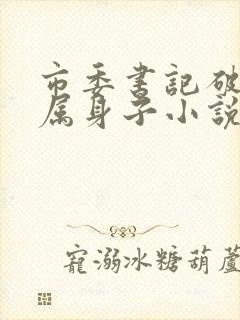 市委書記破
属身子小說
寵溺冰糖葫蘆